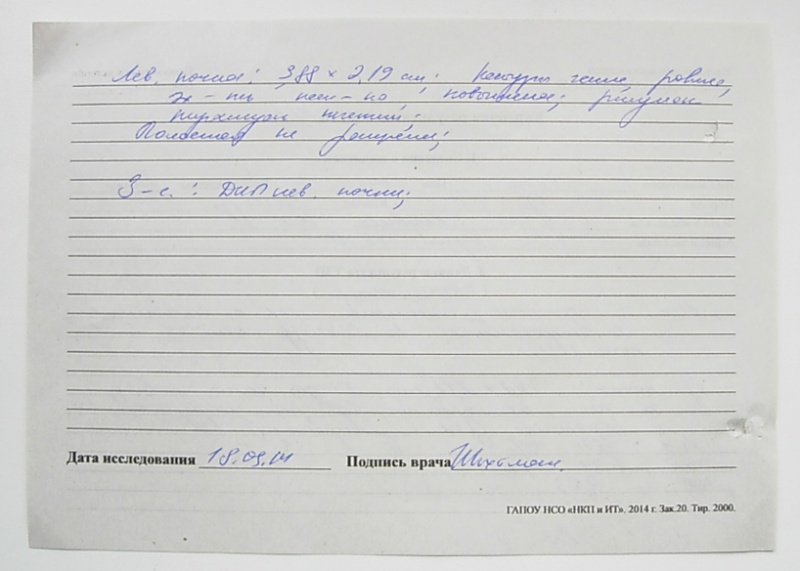 Лев. почка: 3,88 × 2,19 см. Контуры чёткие ровные,
эх-ть нез-но повышена; рисунок
паренхимы нечеткий.
Полостная не расширена;
З-е: ДИМ лев. почки;
Дата исследования 18.09.14 Подпись врача
ГАПОУ НСО «НКП и ИТ». 2014 г. Зак.20. Тир. 2000.